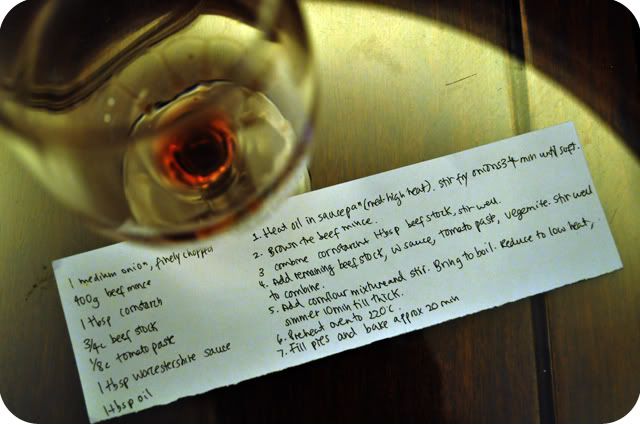 1 medium onion, finely chopped
400g beef mince
1 tbsp cornstarch
3/4c beef stock
1/8c tomato paste
1 tbsp worcestershire sauce
1 tbsp oil
1. Heat oil in saucepan (med-high heat). stir fry onions 3-4 min until soft.
2. Brown the beef mince.
3 combine cornstarch & 1 tbsp beef stock, stir well.
4. Add remaining beef stock, w sauce, tomato paste, vegemite. stir well
to combine.
5. Add cornflour mixture and stir. Bring to boil. Reduce to low heat,
simmer 10min till thick.
6. Preheat oven to 220°C.
7. Fill pies and bake approx 20 min